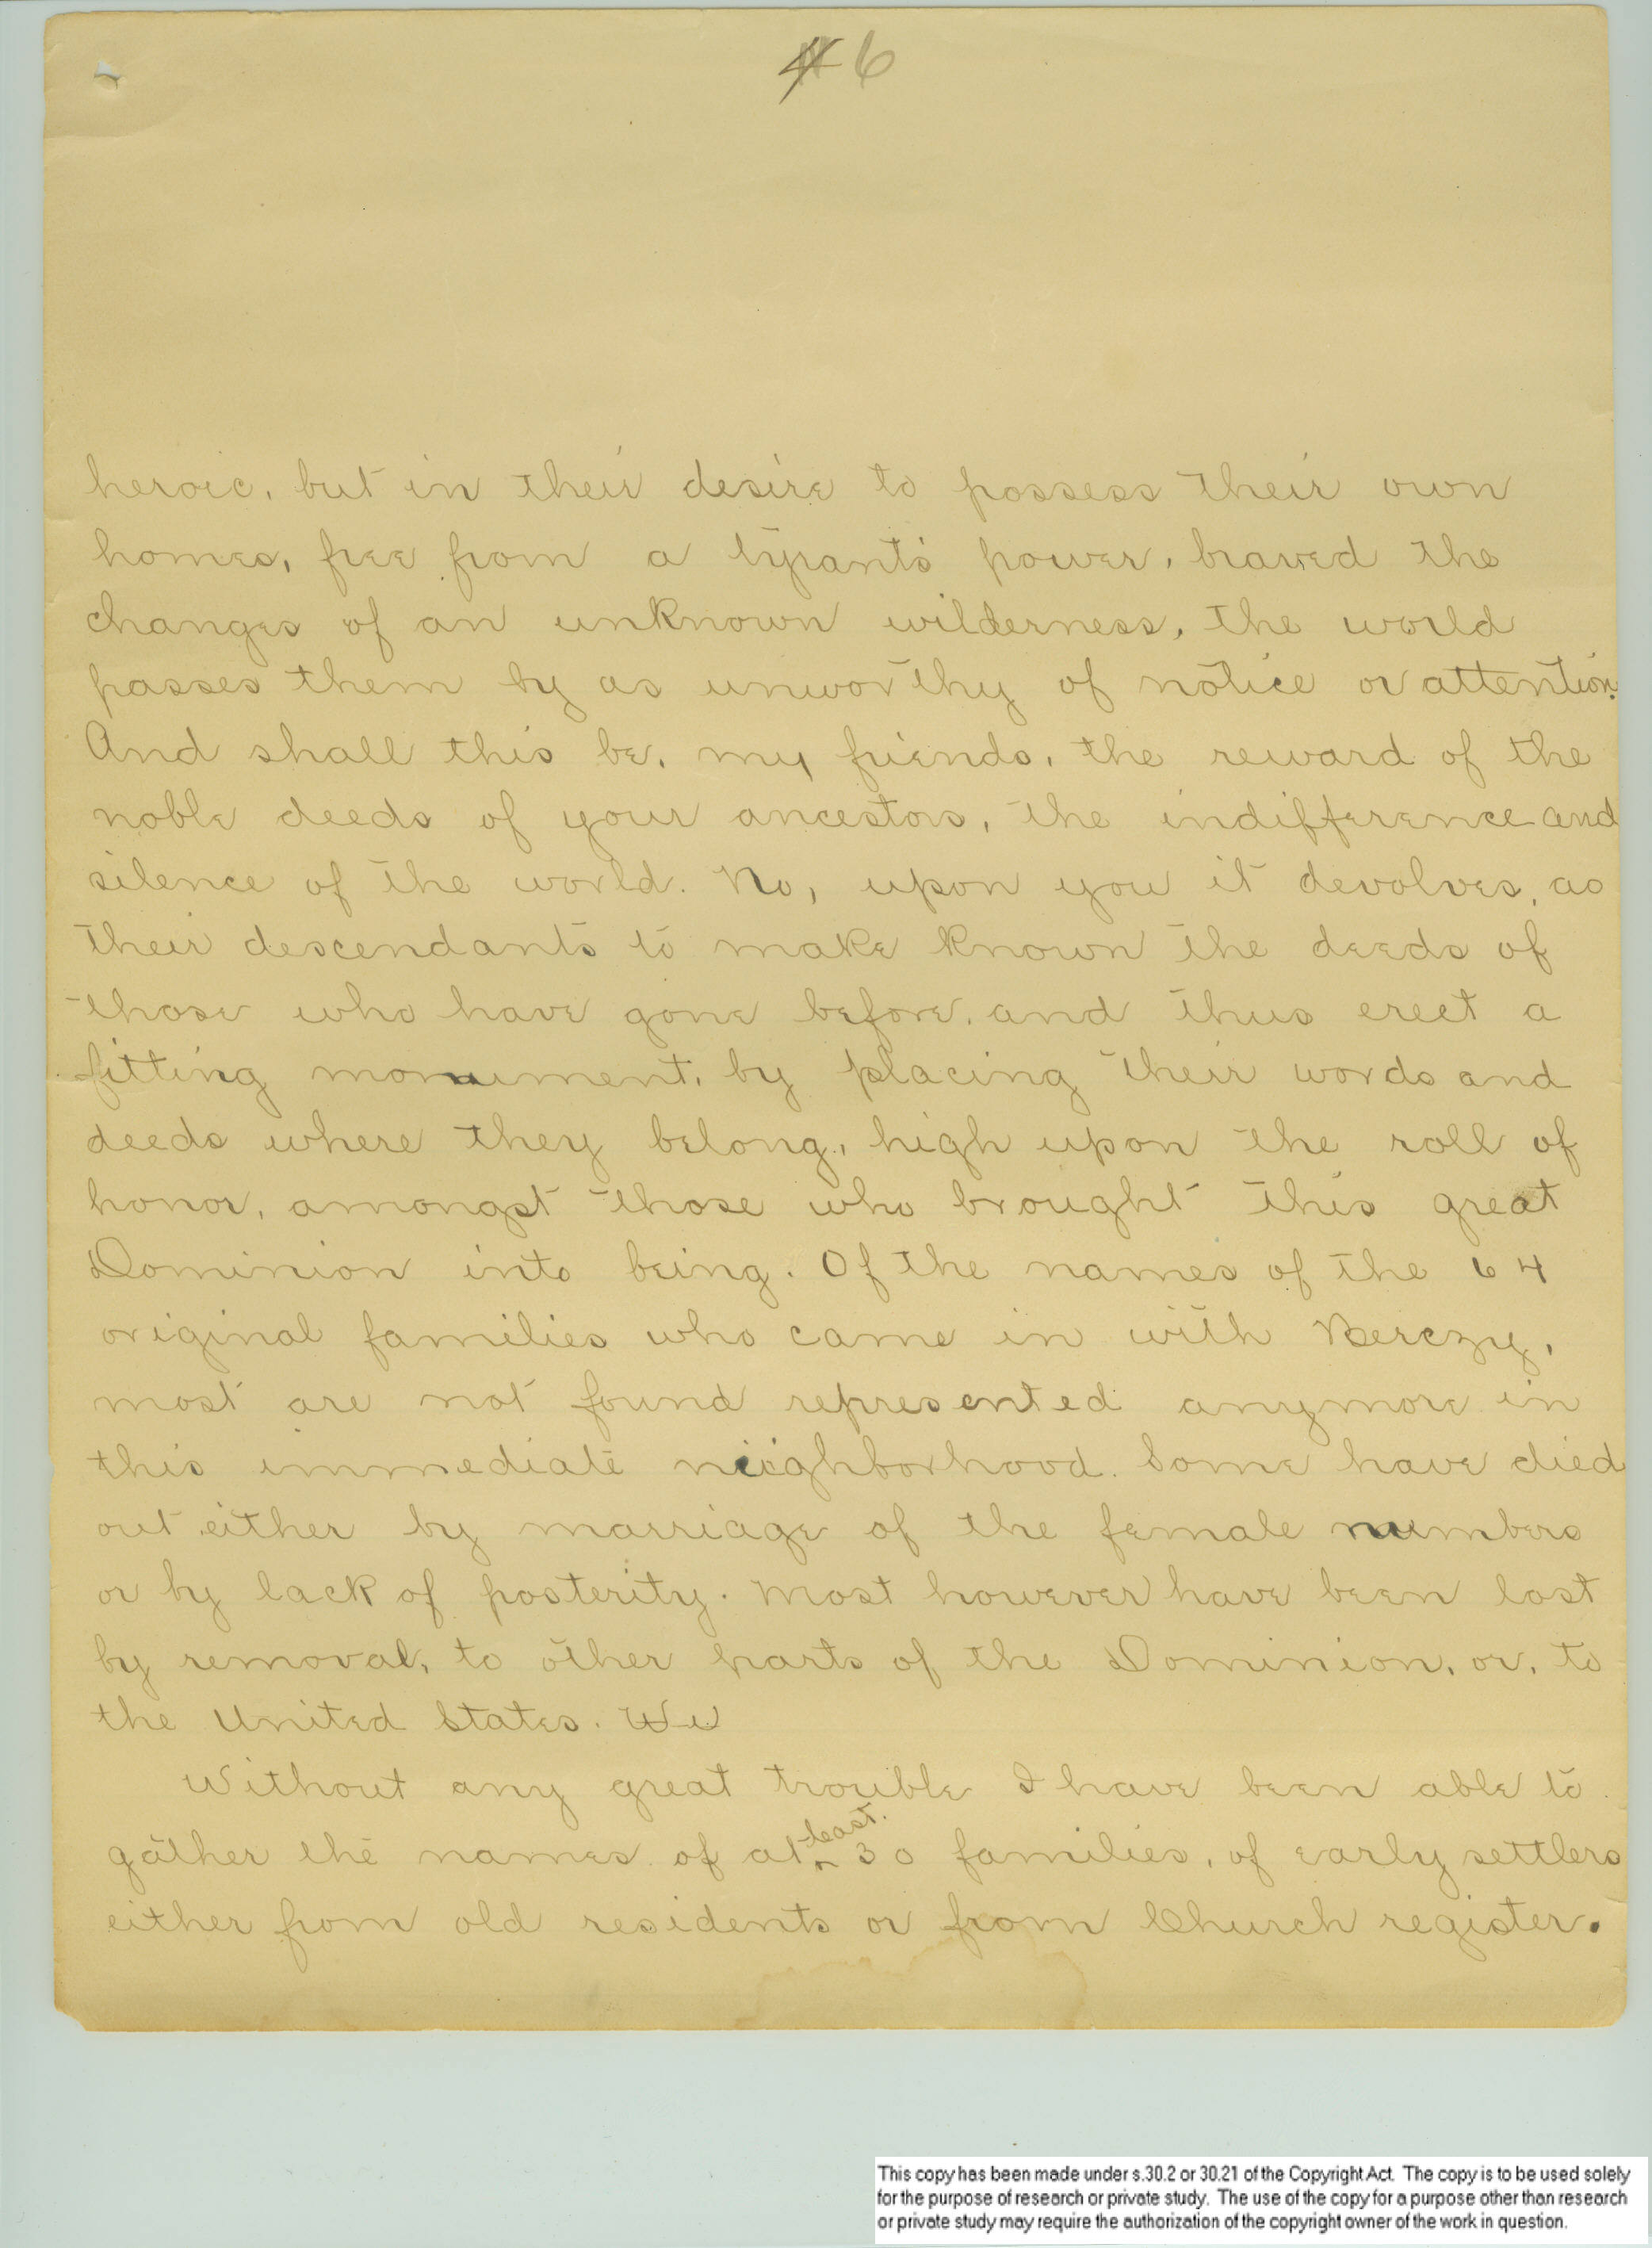 4 6
heroic, but in their desire to possess their own
homes, free from a tyrants power, braved the
changes of an unknown wilderness, the world
passes them by as unworthy of notice or attention.
And shall this be, my friends, the reward of the
noble deeds of your ancestors, the indifference and
silence of the world. No, upon you it devolves, as
their descendants to make known the deeds of
those who have gone before, and thus erect a
fitting monument, by placing their words and
deeds where they belong, high upon the roll of
honor, amongst those who brought this great
Dominion into being. Of the names of the 64
original families who came in with Berczy,
most are not found represented anymore in
this immediate neighborhood. Some have died
out either by marriage of the female numbers
or by lack of posterity. Most however have been lost
by removal, to other parts of the Dominion, or, to
the United States. We
Without any great trouble I have been able to
gather the names of at least 30 families, of early settlers
either from old residents or from Church register.
This copy has been made under s.30.2 or 30.21 of the Copyright Act. The copy is to be used solely
for the purpose of research or private study. The use of the copy for a purpose other than research
or private study may require the authorization of the copyright owner of the work in question.